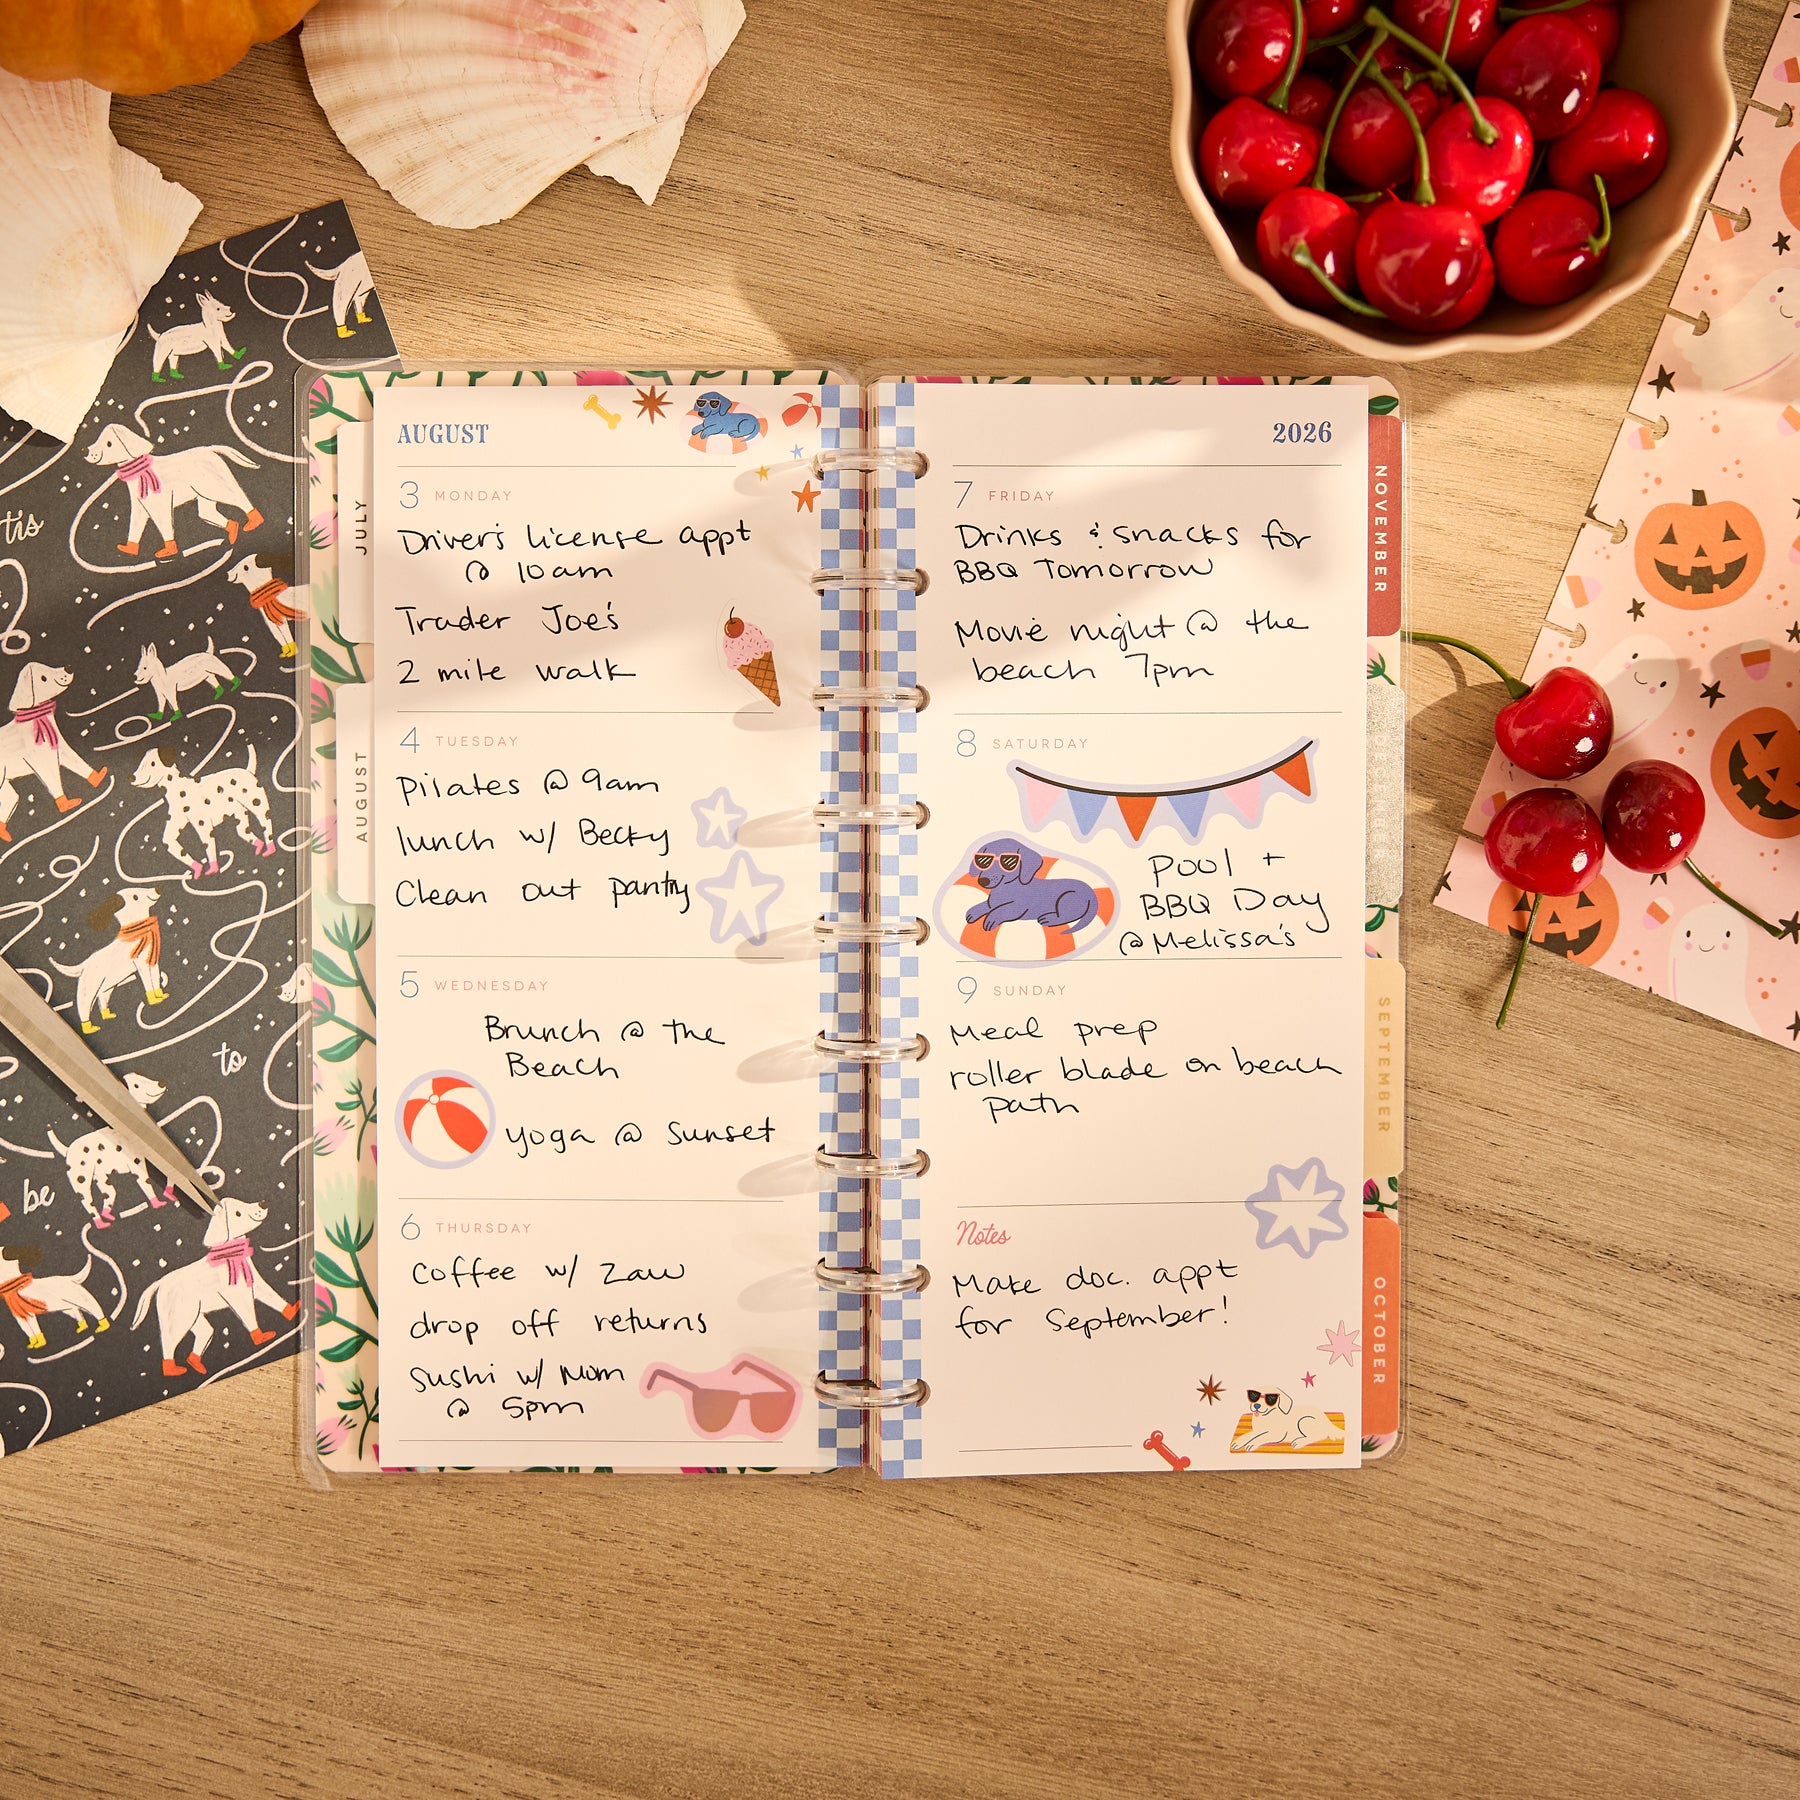 AUGUST
3 MONDAY
Driver's license appt
@ 10am
Trader Joe's
2 mile walk
4 TUESDAY
Pilates @ 9am
lunch w/ Becky
Clean out pantry
5 WEDNESDAY
Brunch @ the
Beach
yoga @ Sunset
6 THURSDAY
Coffee w/ Zaw
drop off returns
Sushi w/ Mom
@ 5pm
2026
7 FRIDAY
Drinks & snacks for
BBQ Tomorrow
Movie night @ the
beach 7pm
8 SATURDAY
Pool +
BBQ Day
@ Melissa's
9 SUNDAY
Meal prep
roller blade on beach
path
Notes
Make doc. appt
for September!
JULY
AUGUST
NOVEMBER
DECEMBER
SEPTEMBER
OCTOBER
'tis
to
be